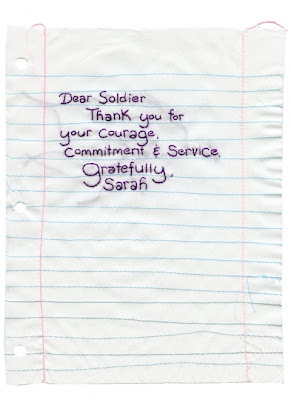 Dear Soldier
Thank you for
your courage,
Commitment & Service.
Gratefully,
Sarah